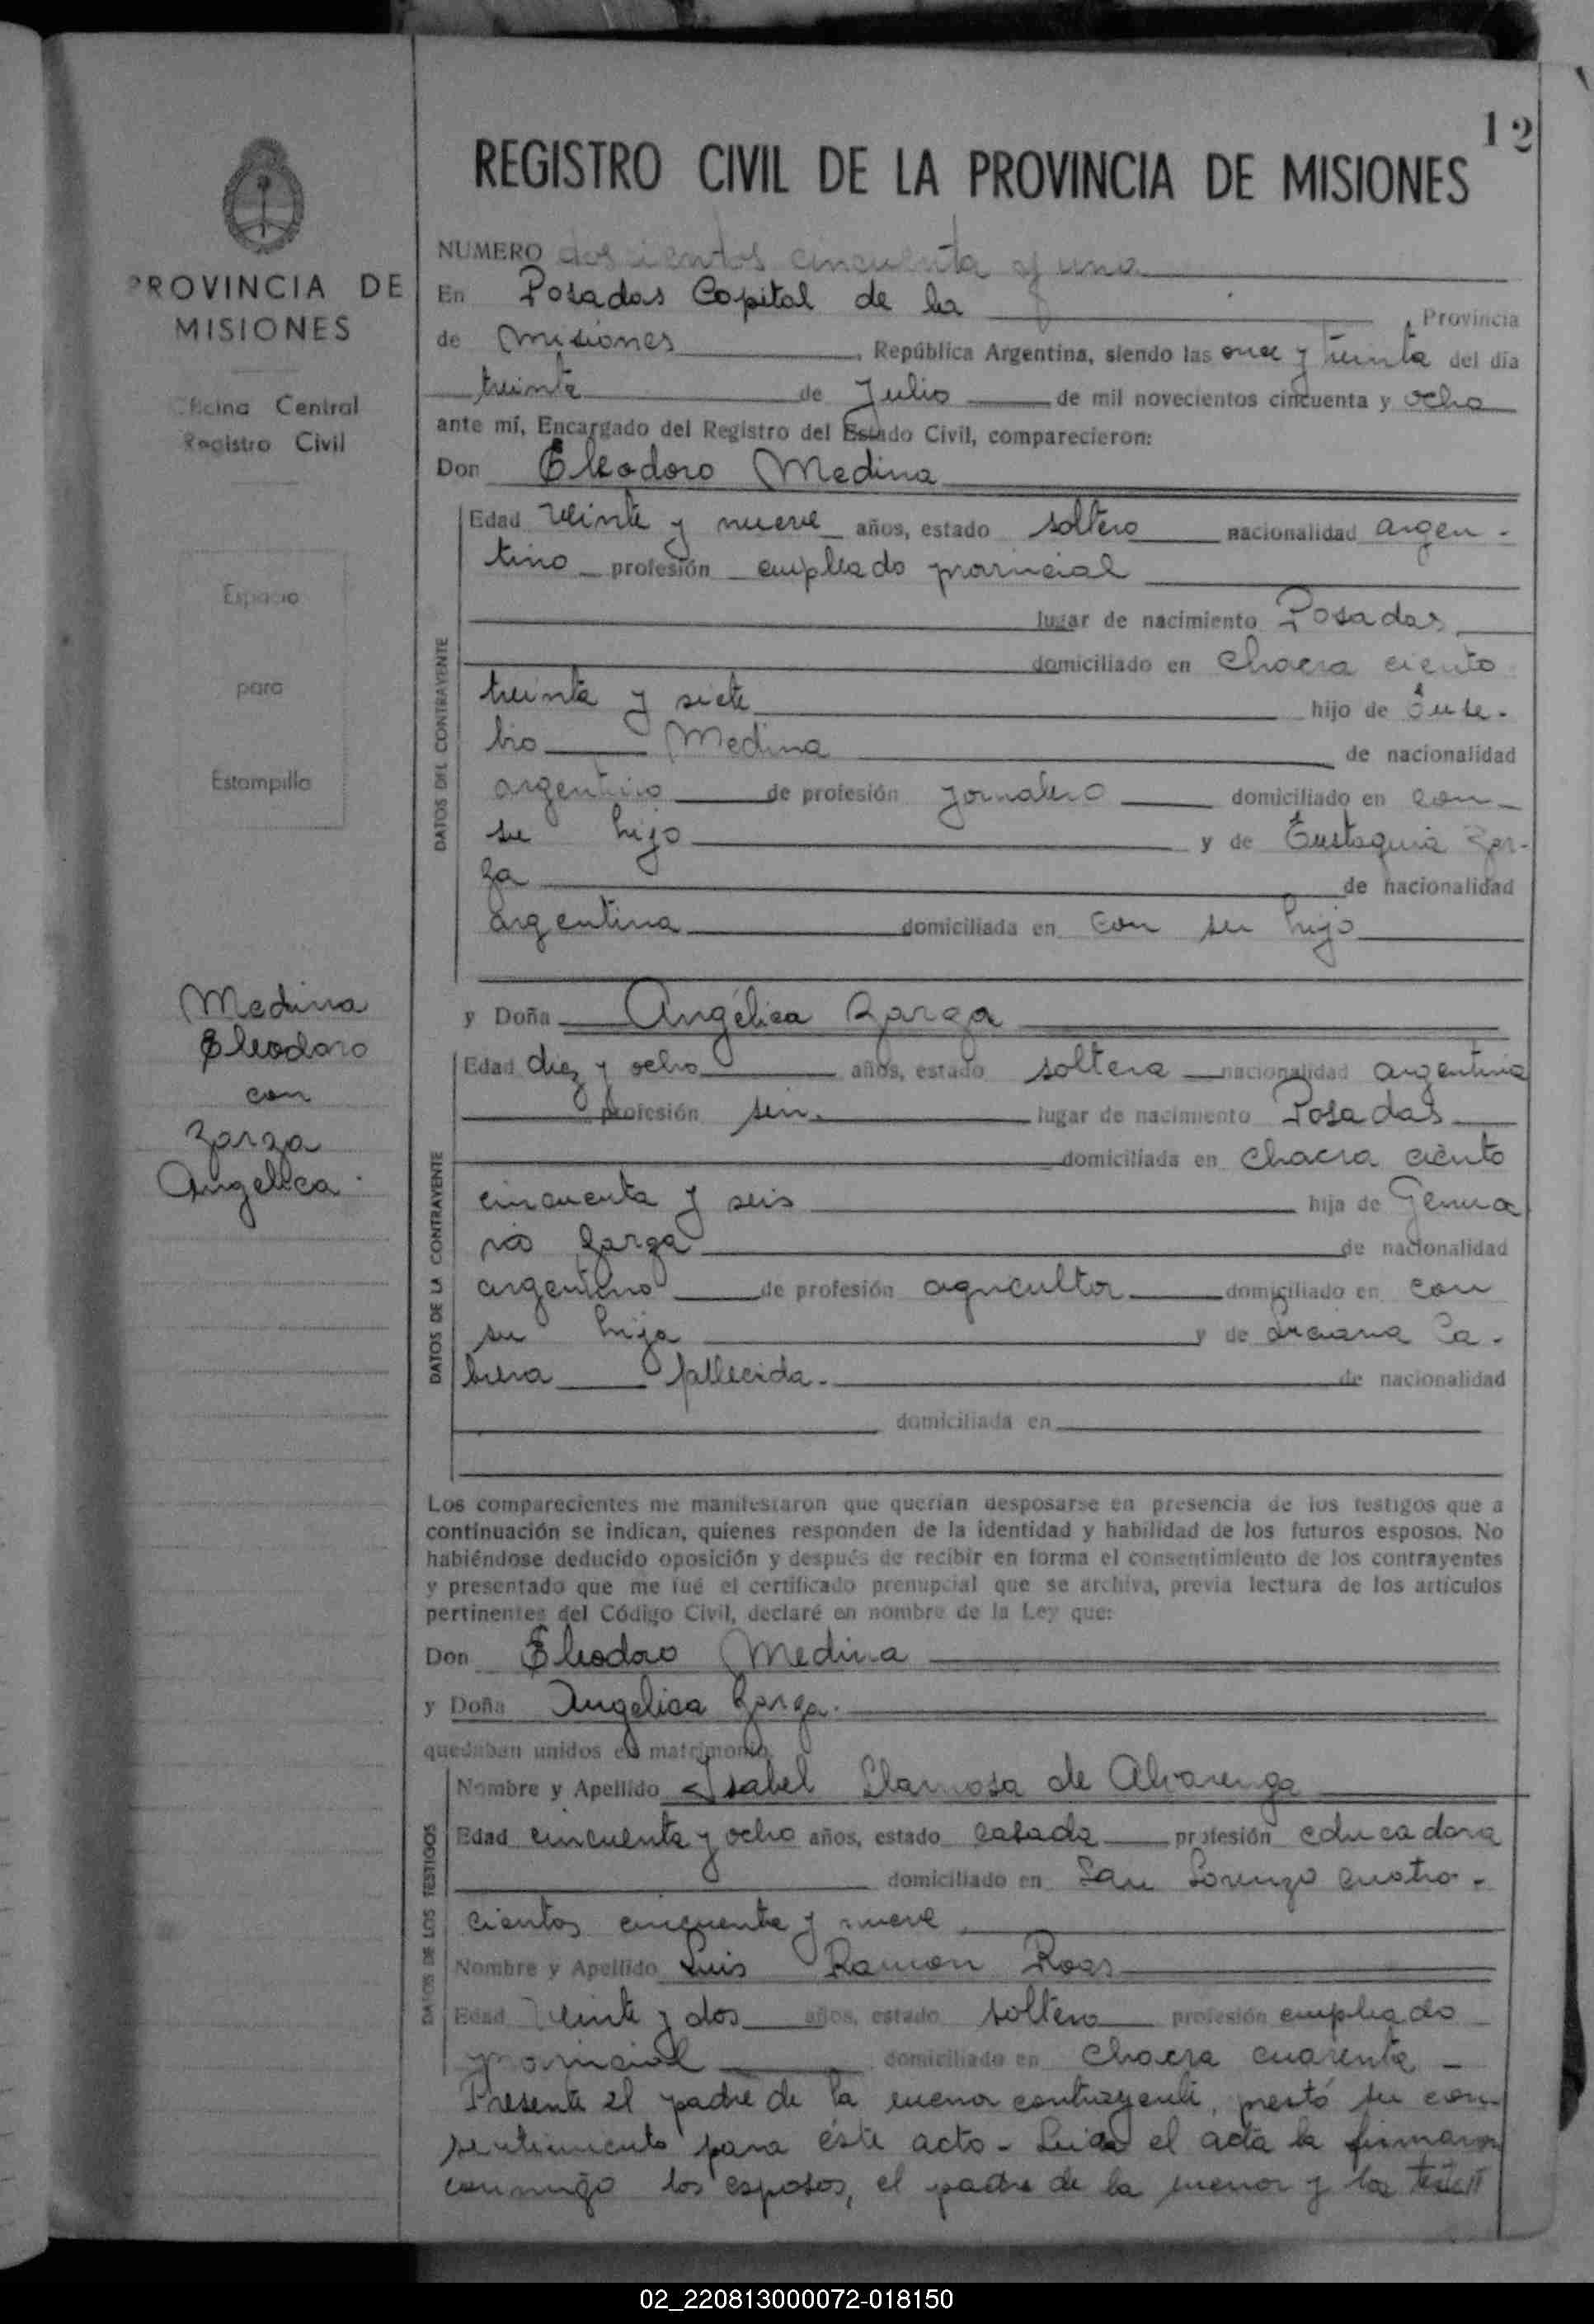 12
REGISTRO CIVIL DE LA PROVINCIA DE MISIONES
PROVINCIA DE
MISIONES
Oficina Central
Registro Civil
Espacio
para
Estampilla
Medina
Eleodoro
con
Zarza
Angelica.
NUMERO doscientos cincuenta y uno
En Posadas Capital de la Provincia
de Misiones, República Argentina, siendo las once y treinta del día
treinta de Julio de mil novecientos cincuenta y ocho
ante mí, Encargado del Registro del Estado Civil, comparecieron:
Don Eleodoro Medina
DATOS DEL CONTRAYENTE
Edad veinte y nueve años, estado soltero nacionalidad argen-
tino profesión empleado provincial
lugar de nacimiento Posadas
domiciliado en Chacra ciento
treinta y siete hijo de Euse-
bio Medina de nacionalidad
argentino de profesión jornalero domiciliado en con
su hijo y de Eustaquia Zar-
za de nacionalidad
argentina domiciliada en con su hijo
y Doña Angélica Zarza
DATOS DE LA CONTRAYENTE
Edad diez y ocho años, estado soltera nacionalidad argentina
profesión sin. lugar de nacimiento Posadas
domiciliada en Chacra ciento
cincuenta y seis hija de Genua
rio Zarza de nacionalidad
argentino de profesión agricultor domiciliado en con
su hija y de Ca-
brera fallecida. de nacionalidad
domiciliada en
Los comparecientes me manifestaron que querían desposarse en presencia de los testigos que a
continuación se indican, quienes responden de la identidad y habilidad de los futuros esposos. No
habiéndose deducido oposición y después de recibir en forma el consentimiento de los contrayentes
y presentado que me fué el certificado prenupcial que se archiva, previa lectura de los artículos
pertinentes del Código Civil, declaré en nombre de la Ley que:
Don Eleodoro Medina
y Doña Angelica Zarza.
quedaban unidos en matrimonio.
DATOS DE LOS TESTIGOS
Nombre y Apellido Isabel Llamosa de Alvarenga
Edad cincuenta y ocho años, estado casada profesión educadora
domiciliado en San Lorenzo cuatro-
cientos cincuenta y nueve
Nombre y Apellido Luis Ramon Roas
Edad veinte y dos años, estado soltero profesión empleado
provincial domiciliado en Chacra cuarenta -
Presente el padre de la menor contrayente, prestó su con-
sentimiento para éste acto - Leida el acta la firmaron
conmigo los esposos, el padre de la menor y los
02_220813000072-018150